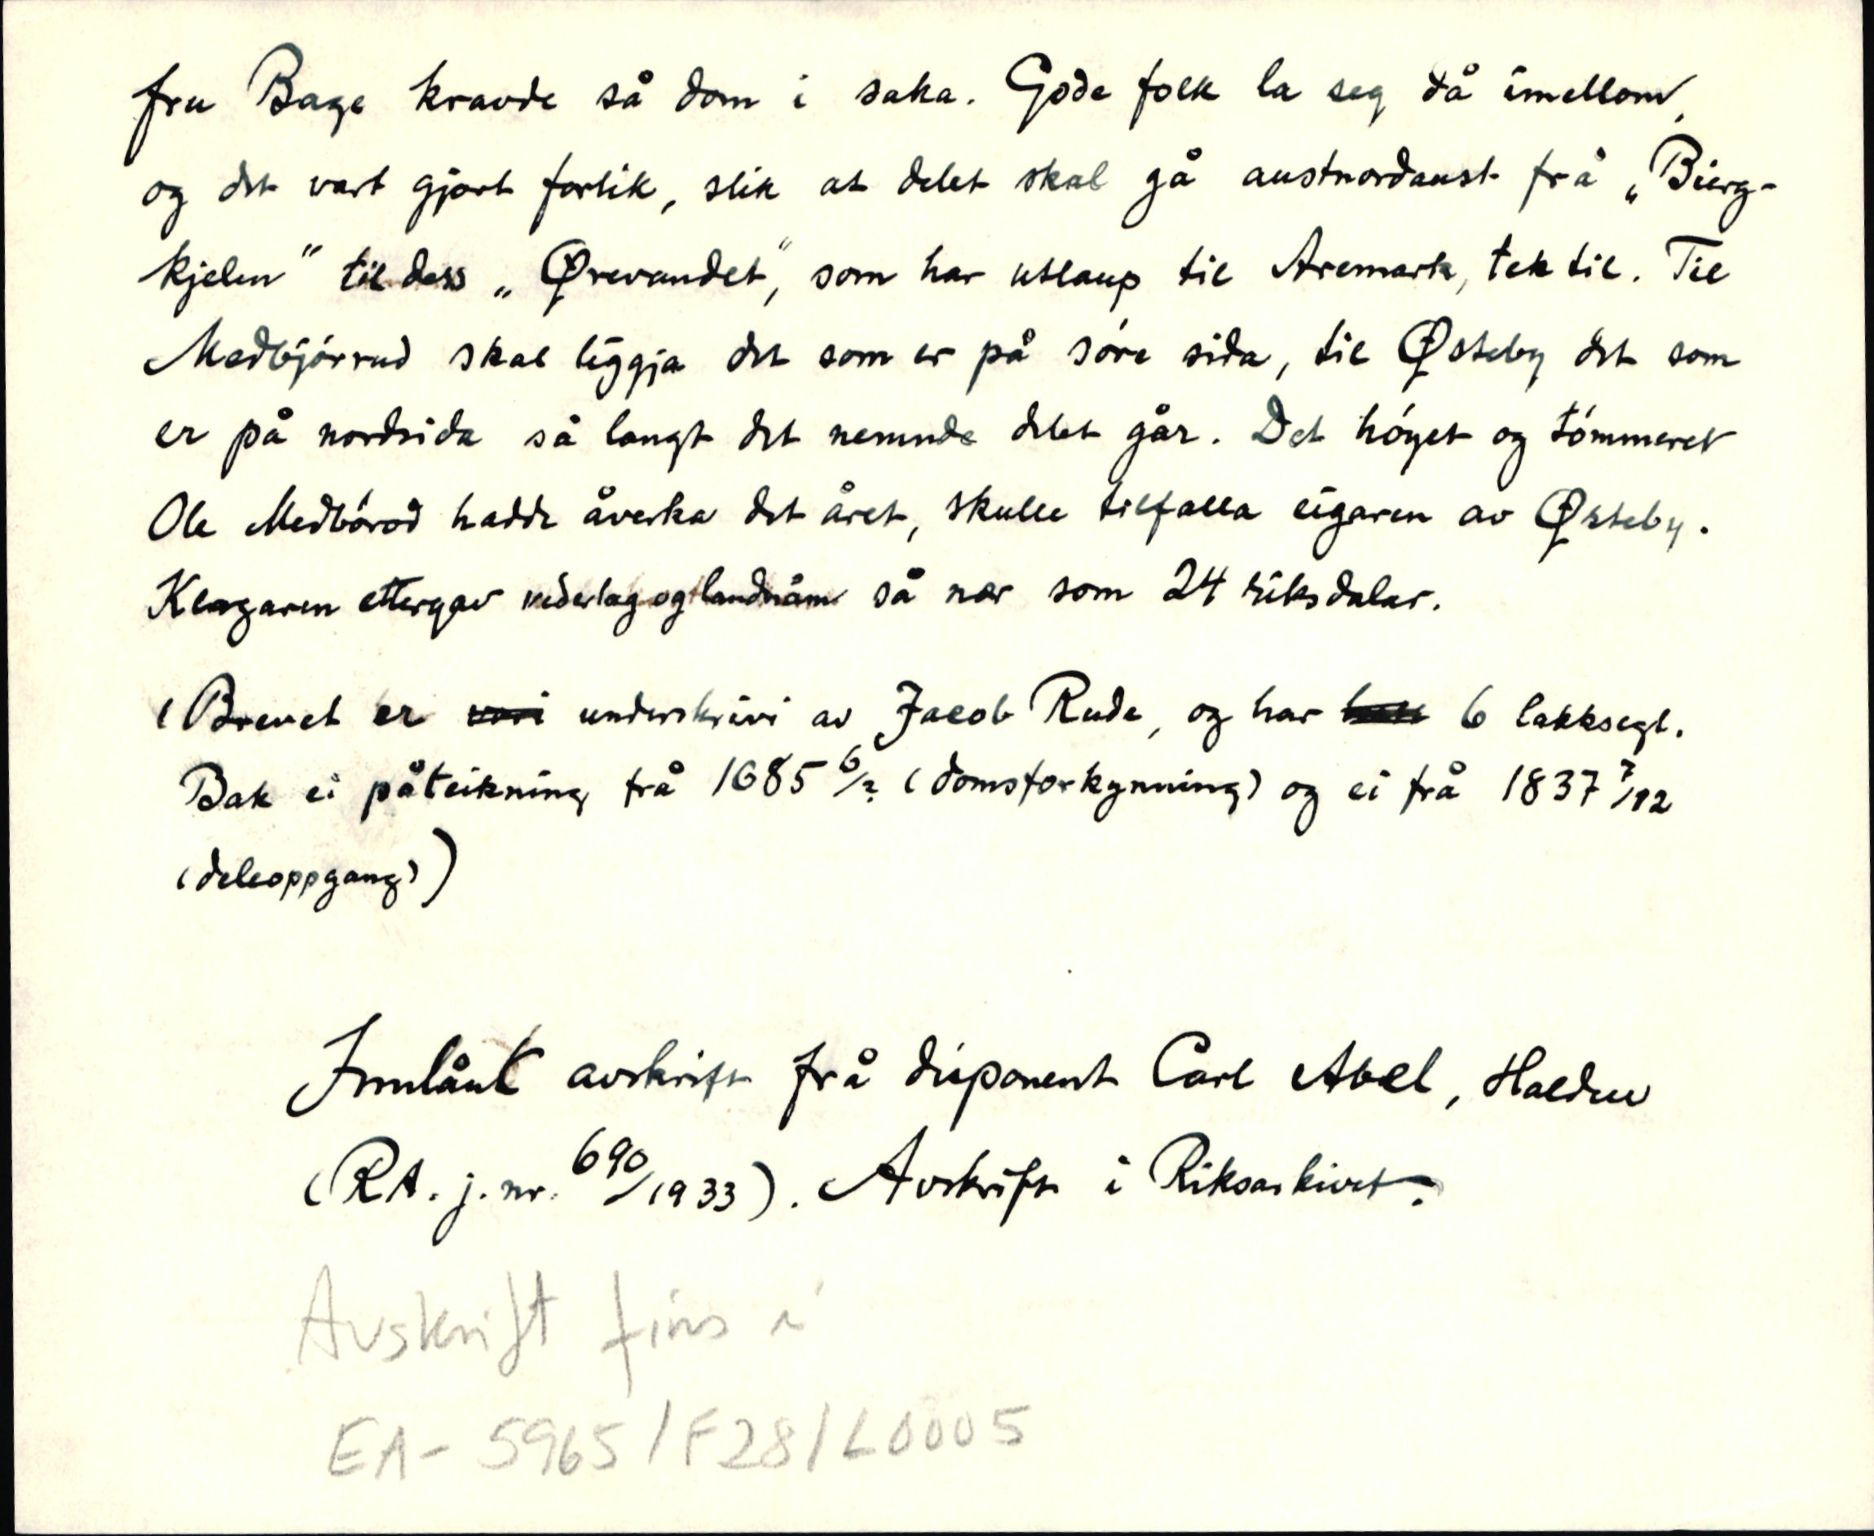 fru Bage kravde så dom i saka. Gode folk la seg då imellom,
og det vart gjort forlik, slik at delet skal gå austnordaust frå „Bierg-
kjelen" til dess „Ørevandet", som har utlaup til Aremark, tek til. Til
Medbjörrud skal liggja det som er på söre sida, til Østeby det som
er på nordsida så langt det nemnde delet går. Det höyet og tömmeret
Ole Medböröd hadde åverka det året, skulle tilfalla eigaren av Østeby.
Klagaren ettergav vederlag og landnåm så nær som 24 riksdalar.
(Brevet er vori underskrivi av Jacob Rude, og har 6 lakksegl.
Bak ei påteikning frå 1685 6/2 (domsforkynning) og ei frå 1837 7/12
(deleoppgang))
Innlånt avskrift frå disponent Carl Abel, Halden
(RA. j.nr. 690/1933). Avskrift i Riksarkivet.
Avskrift fins i
EA- 5965/F28/L0005